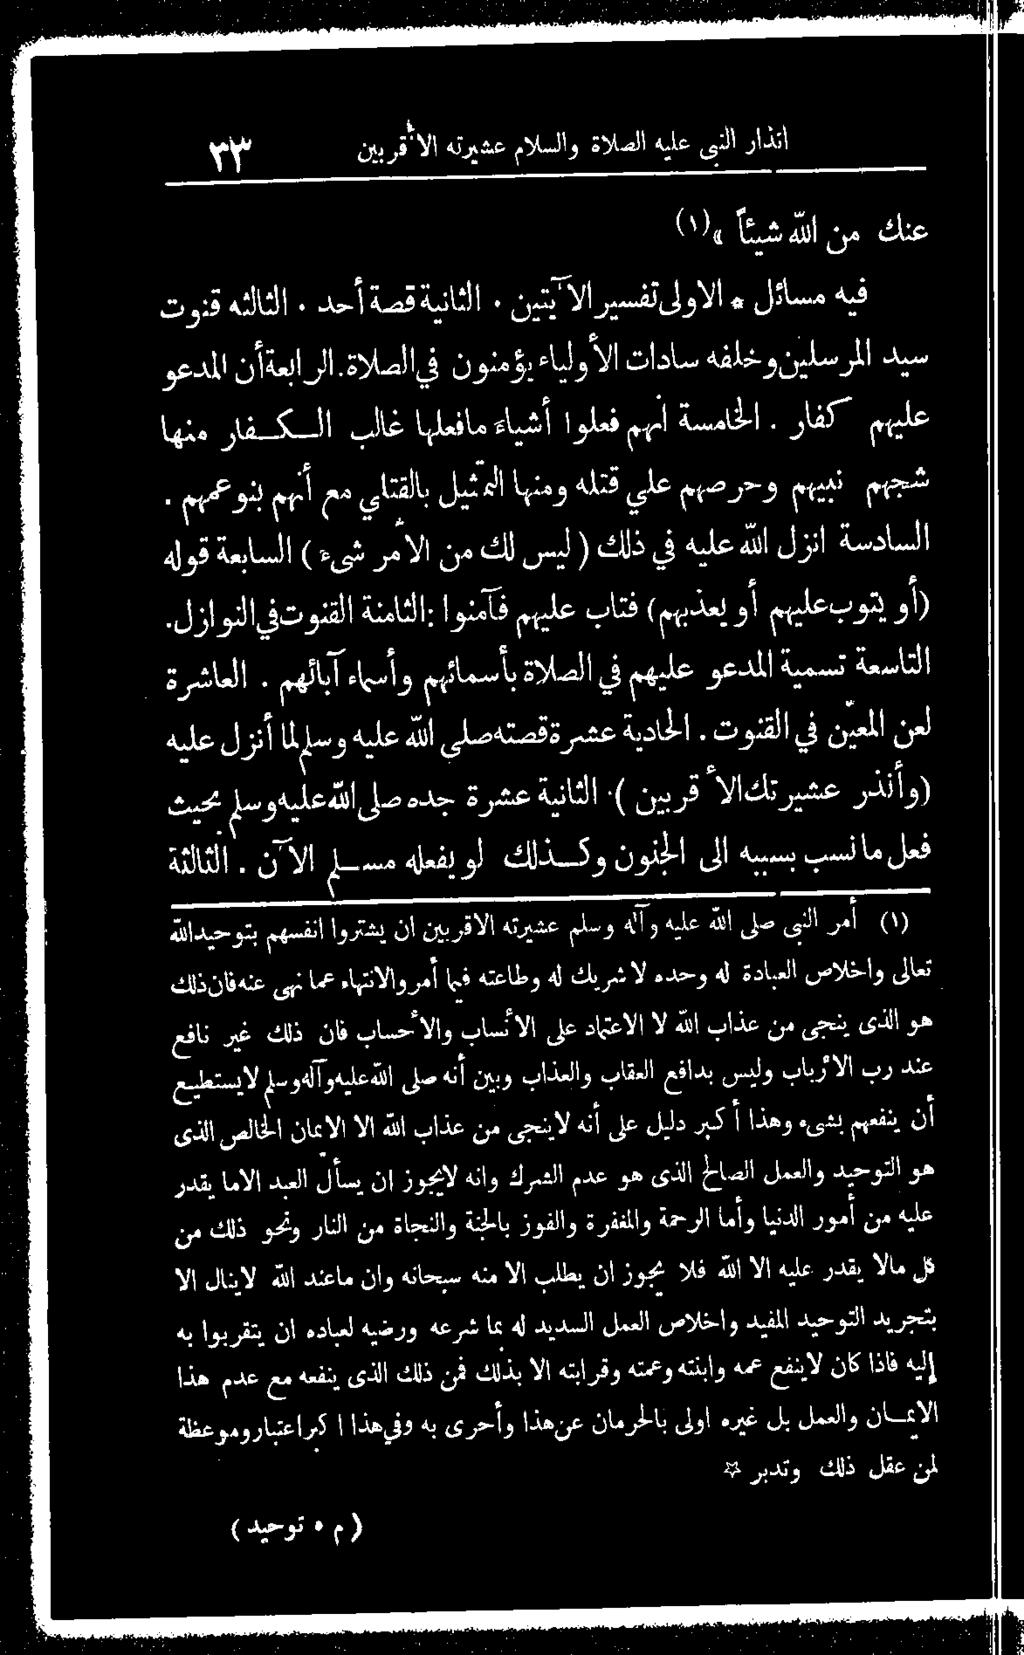 انذار النبي عليه الصلاة والسلام عشيرته الأقربين ٣٣
عنك من الله شيئاً » (١)
فيه مسائل * الاولى تفسير الآيتين . الثانية قصة أحد . الثالثه قنوت
سيد المرسلين وخلفه سادات الأولياء يؤمنون في الصلاة . الرابعة أن المدعو
عليهم كفار . الخامسة أنهم فعلوا أشياء ما فعلها غالب الكفار منها
شجهم نبيهم وحرصهم علي قتله ومنها التمثيل بالقتلي مع أنهم بنو عمهم .
السادسة انزل الله عليه في ذلك ( ليس لك من الأمر شىء ) السابعة قوله
(أو يتوب عليهم أو يعذبهم) فتاب عليهم فآمنوا : الثامنة القنوت في النوازل.
التاسعة تسمية المدعو عليهم في الصلاة بأسمائهم وأسماء آبائهم . العاشرة
لعن المعيّن في القنوت . الحادية عشرة قصته صلي الله عليه وسلم لما أنزل عليه
(وأنذر عشيرتك الأقربين ) . الثانية عشرة جده صلى الله عليه وسلم بحيث
فعل ما نسب بسببه الى الجنون وكذلك لو يفعله مسلم الآن . الثالثة
(١) أمر النبي صلى الله عليه وآله وسلم عشيرته الاقربين ان يشتروا انفسهم بتوحيد الله
تعالى واخلاص العبادة له وحده لا شريك له وطاعته فيما أمر والانتهاء عما نهى عنه فان ذلك
هو الذى ينجى من عذاب الله لا الاعتماد على الأنساب والأحساب فان ذلك غير نافع
عند رب الأرباب وليس بدافع العقاب والعذاب وبين أنه صلى الله عليه وآله وسلم لا يستطيع
أن ينفعهم بشىء وهذا أكبر دليل على أنه لا ينجى من عذاب الله الا الايمان الخالص الذى
هو التوحيد والعمل الصالح الذى هو عدم الشرك وانه لا يجوز ان يسأل العبد الا ما يقدر
عليه من أمور الدنيا وأما الرحمة والمغفرة والفوز بالجنة والنجاة من النار ونحو ذلك من
كل مالا يقدر عليه الا الله فلا يجوز ان يطلب الا منه سبحانه وان ماعند الله لا ينال الا
بتجريد التوحيد المفيد واخلاص العمل السديد له بما شرعه ورضيه لعباده ان يتقربوا به
إليه فاذا كان لا ينفع عمه وابنته وعمته وقرابته الا بذلك فمن ذلك الذى ينفعه مع عدم هذا
الايمان والعمل بل غيره اولى بالحرمان عن هذا وأحرى به وفي هذا اكبر اعتبار وموعظة
لمن عقل ذلك وتدبر ☆
( م ٥ توحيد )